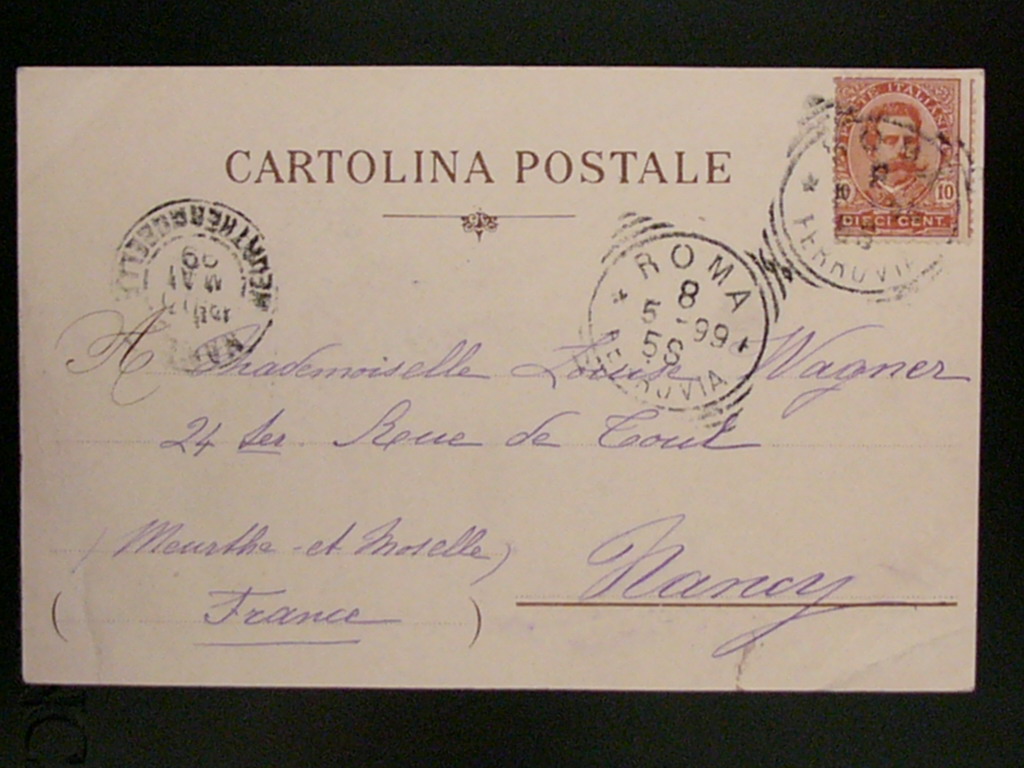 CARTOLINA POSTALE
POSTE ITALIANE
10 10
DIECI CENT.
FERROVIA
ROMA
8
5 - 99
5S
FERROVIA
MEURTHE
NANCY
A Mademoiselle Louise Wagner
24 ter Rue de Toul
(Meurthe-et Moselle)
Nancy
(France)